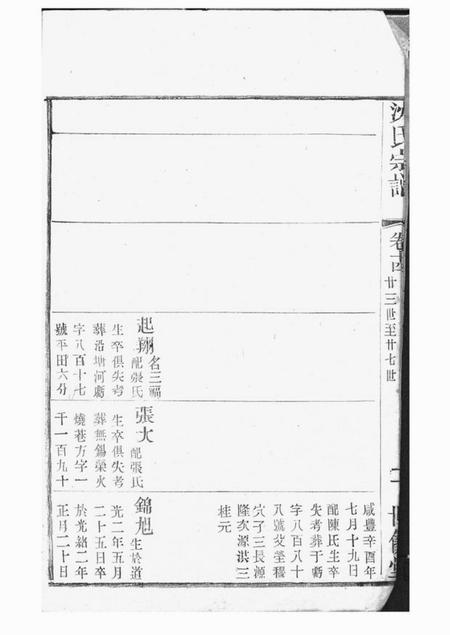 沈氏宗譜
卷十四
廿三世至廿七世
咸豐辛酉年
七月十九日
配陳氏生卒
失考葬于虧
字八百八十
八號艾塋穆
穴子三長源
隆次源洪三
桂元
起翔名三福
配張氏
生卒俱失考
葬沿塘河虧
字八百十七
號平田六分
張大配張氏
生卒俱失考
葬無錫榮火
燒巷方字一
千一百九十
錦旭生於道
光二年五月
二十五日卒
於光緒二年
正月二十日